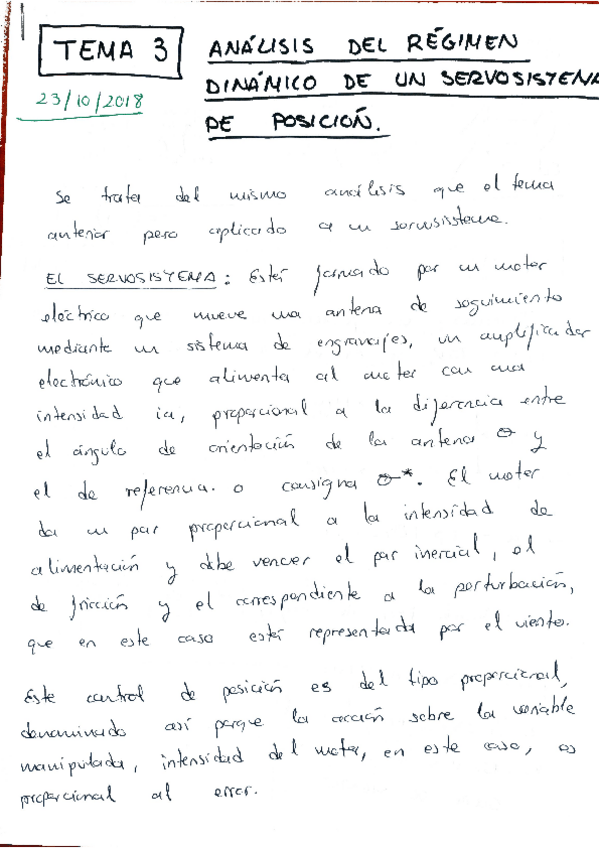 TEMA 3
ANÁLISIS DEL RÉGIMEN
DINÁMICO DE UN SERVOSISTEMA
DE POSICIÓN.
23/10/2018
Se trata del mismo análisis que el tema
anterior pero aplicado a un servosistema.
EL SERVOSISTEMA: Está formado por un motor
eléctrico que mueve una antena de seguimiento
mediante un sistema de engranajes, un amplificador
electrónico que alimenta al motor con una
intensidad ia, proporcional a la diferencia entre
el ángulo de orientación de la antena θ y
el de referencia o consigna θ*. El motor
da un par proporcional a la intensidad de
alimentación y debe vencer el par inercial, el
de fricción y el correspondiente a la perturbación,
que en este caso está representada por el viento.
Este control de posición es del tipo proporcional,
denominado así porque la acción sobre la variable
manipulada, intensidad del motor, en este caso, es
proporcional al error.